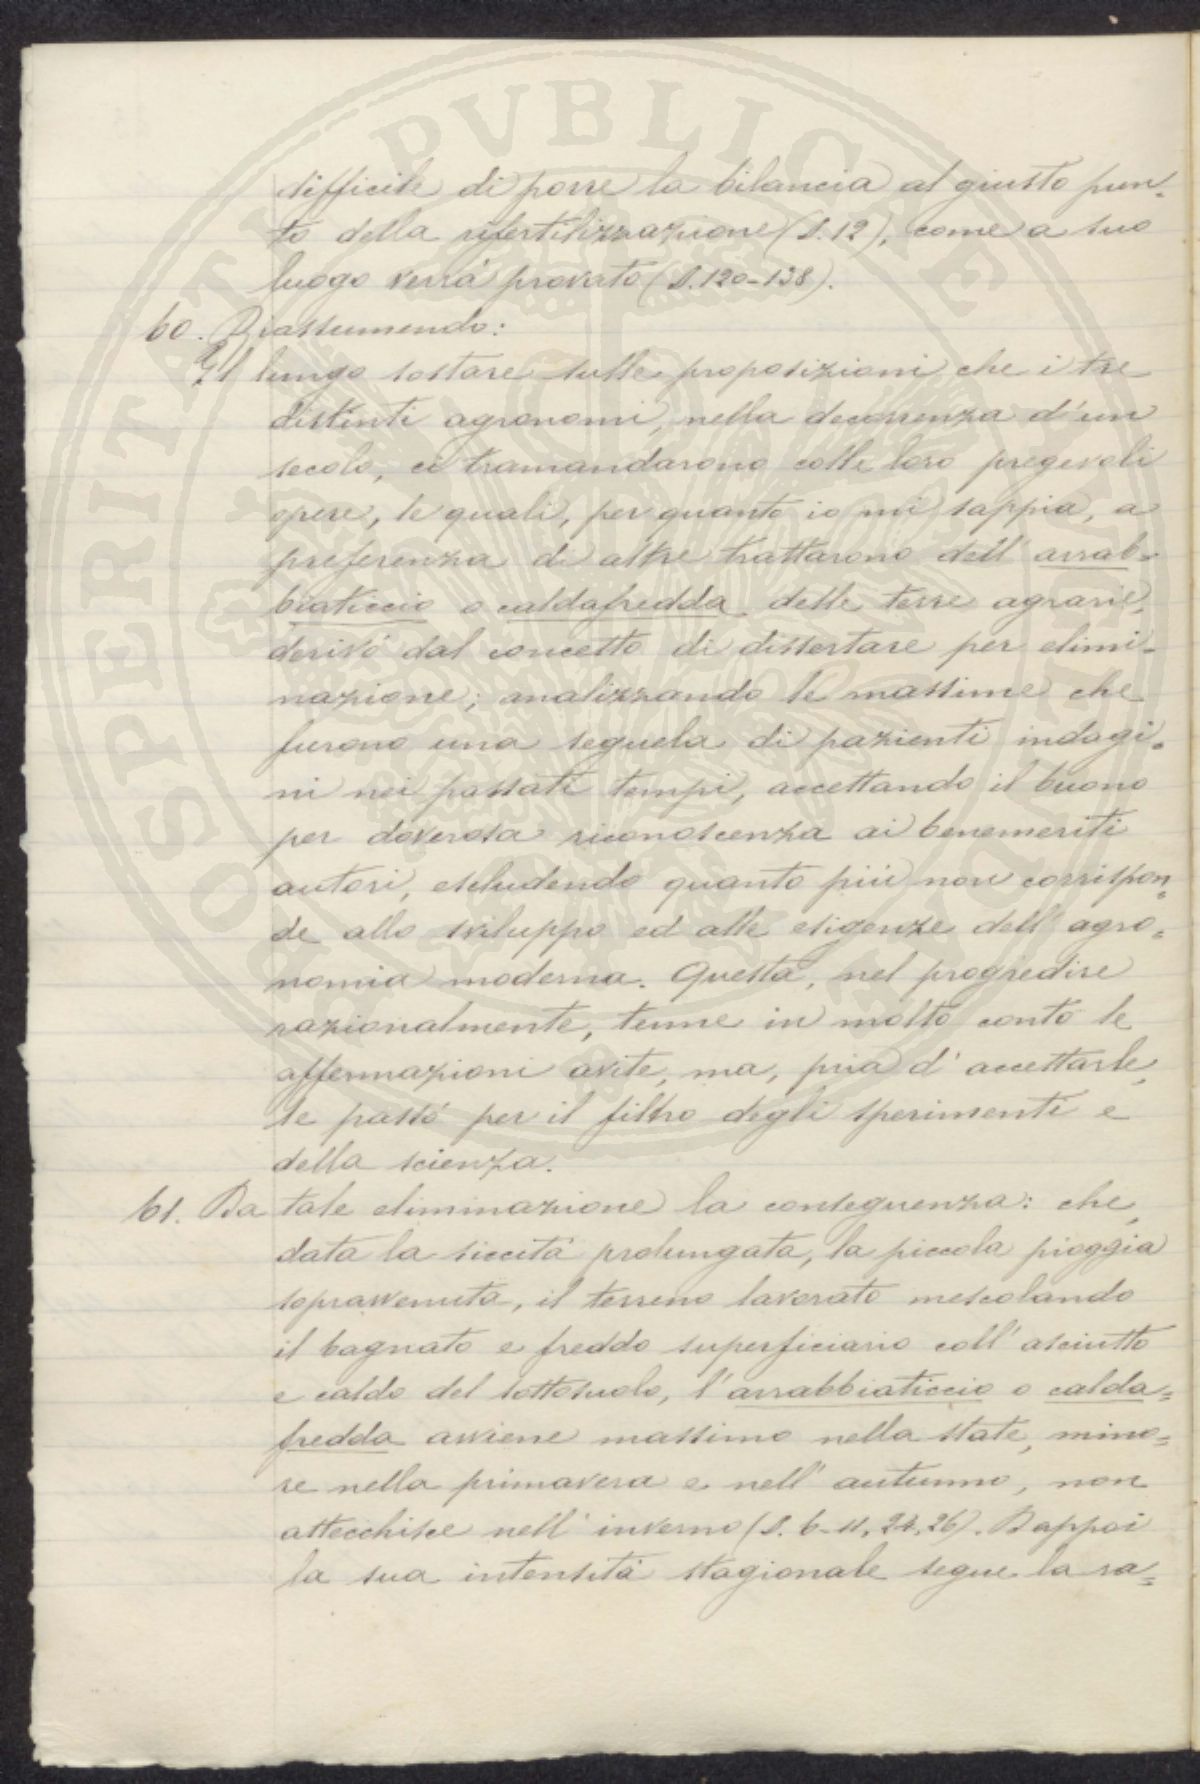 difficile di porre la bilancia al giusto pun-
to della rifertilizzazione (§. 12), come a suo
luogo verrà provato (§. 120-138).
60. Riassumendo:
Il lungo sostare sulle proposizioni che i tre
distinti agronomi, nella decorrenza d'un
secolo, ci tramandarono colle loro pregevoli
opere, le quali, per quanto io mi sappia, a
preferenza di altre trattarono dell'arrab-
biaticcio o caldafredda delle terre agrarie,
derivò dal concetto di dissertare per elimi-
nazione; analizzando le massime che
furono una sequela di pazienti indagi-
ni nei passati tempi, accettando il buono
per doverosa riconoscenza ai benemeriti
autori, escludendo quanto più non corrispon-
de allo sviluppo ed alle esigenze dell'agro=
nomia moderna. Questa, nel progredire
razionalmente, tenne in molto conto le
affermazioni avite, ma, pria d'accettarle,
le passò per il filtro degli sperimenti e
della scienza.
61. Da tale eliminazione la conseguenza: che,
data la siccità prolungata, la piccola pioggia
sopravvenuta, il terreno lavorato mescolando
il bagnato e freddo superficiario coll'asciutto
e caldo del sottosuolo, l'arrabbiaticcio o calda=
fredda avviene massimo nella state, mino=
re nella primavera e nell'autunno, non
attecchisce nell'inverno (§. 6-11, 24, 26). Dappoi
la sua intensità stagionale segue la ra=
PROSPERITATI PVBLICAE AVGENDAE